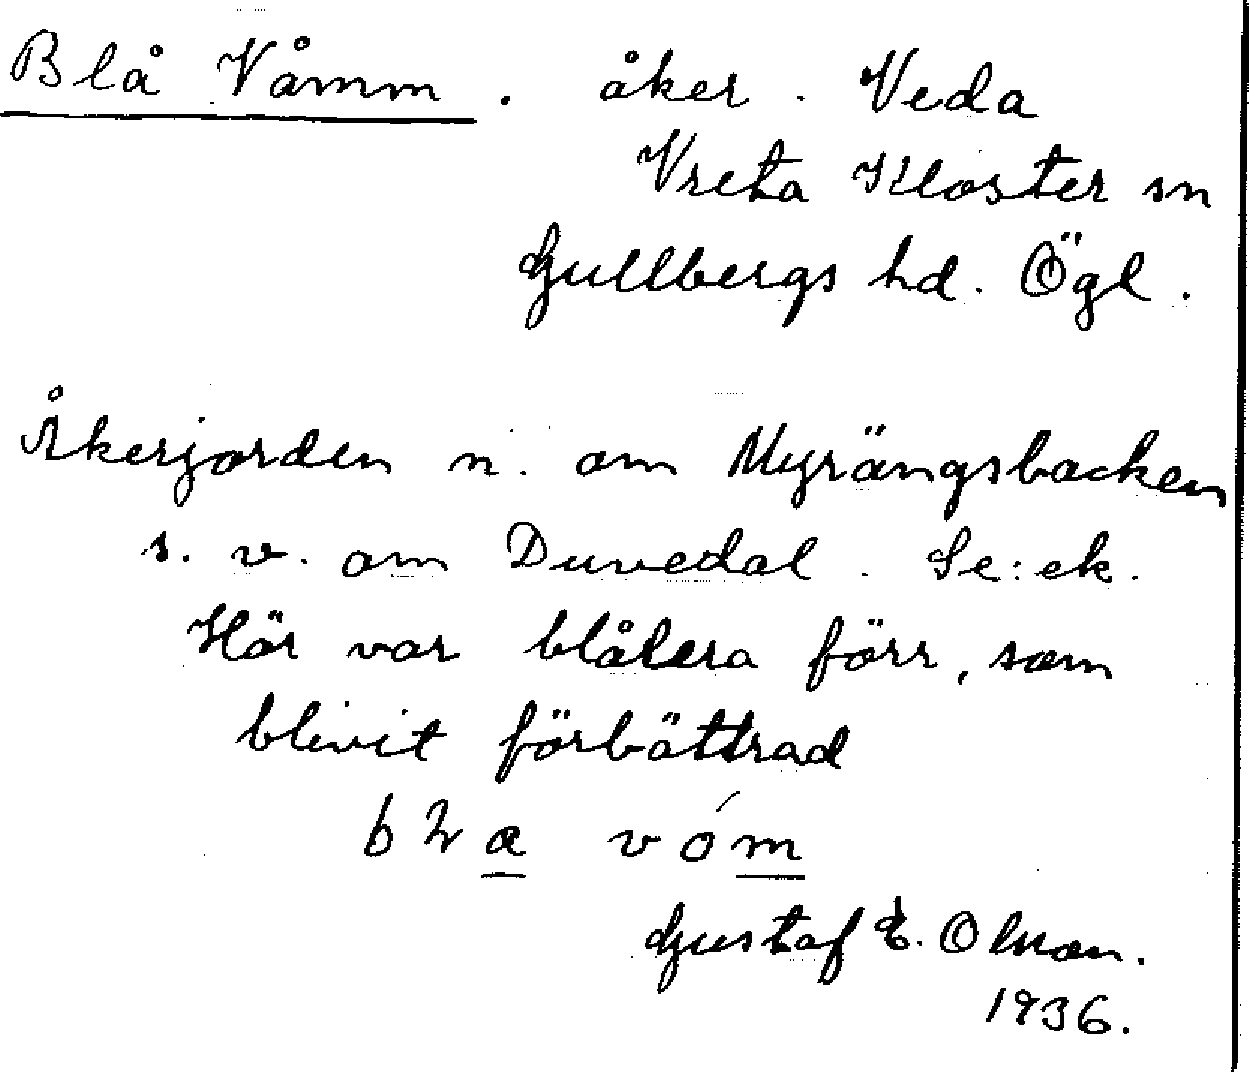 Blå Våmm. åker. Veda
Vreta Kloster sn
Gullbergs hd. Ögl.
Åkerjorden n. om Myrängsbacken
s. v. om Duvedal. Se: ek.
Här var blålera förr, som
blivit förbättrad
Gustaf E. Olson.
1936.